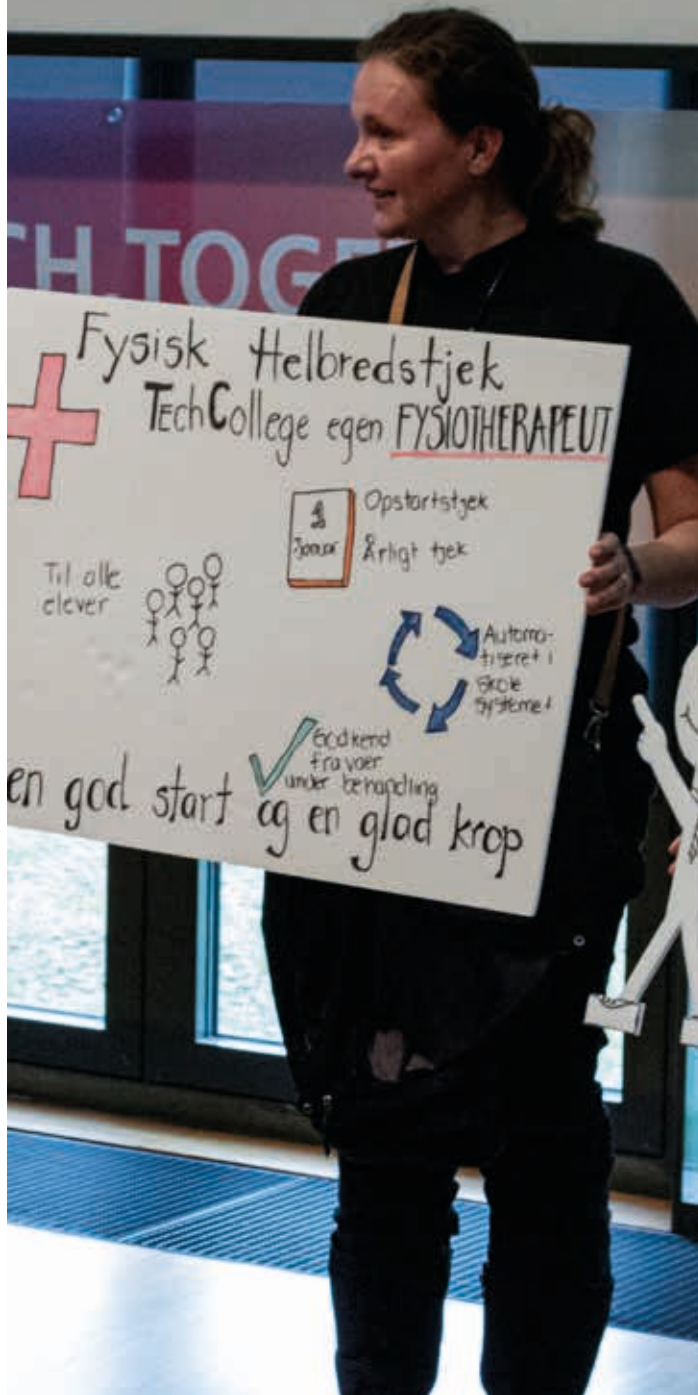 CH.TOGE
Fysisk Helbredstjek
TEchCollege egen FYSIOTHERAPEUT
1
Januar
Opstartstjek
Årligt tjek
Til alle
elever
Automa-
tiseret i
skole
systemet
Godkend
fravær
under behandling
en god start og en glad krop